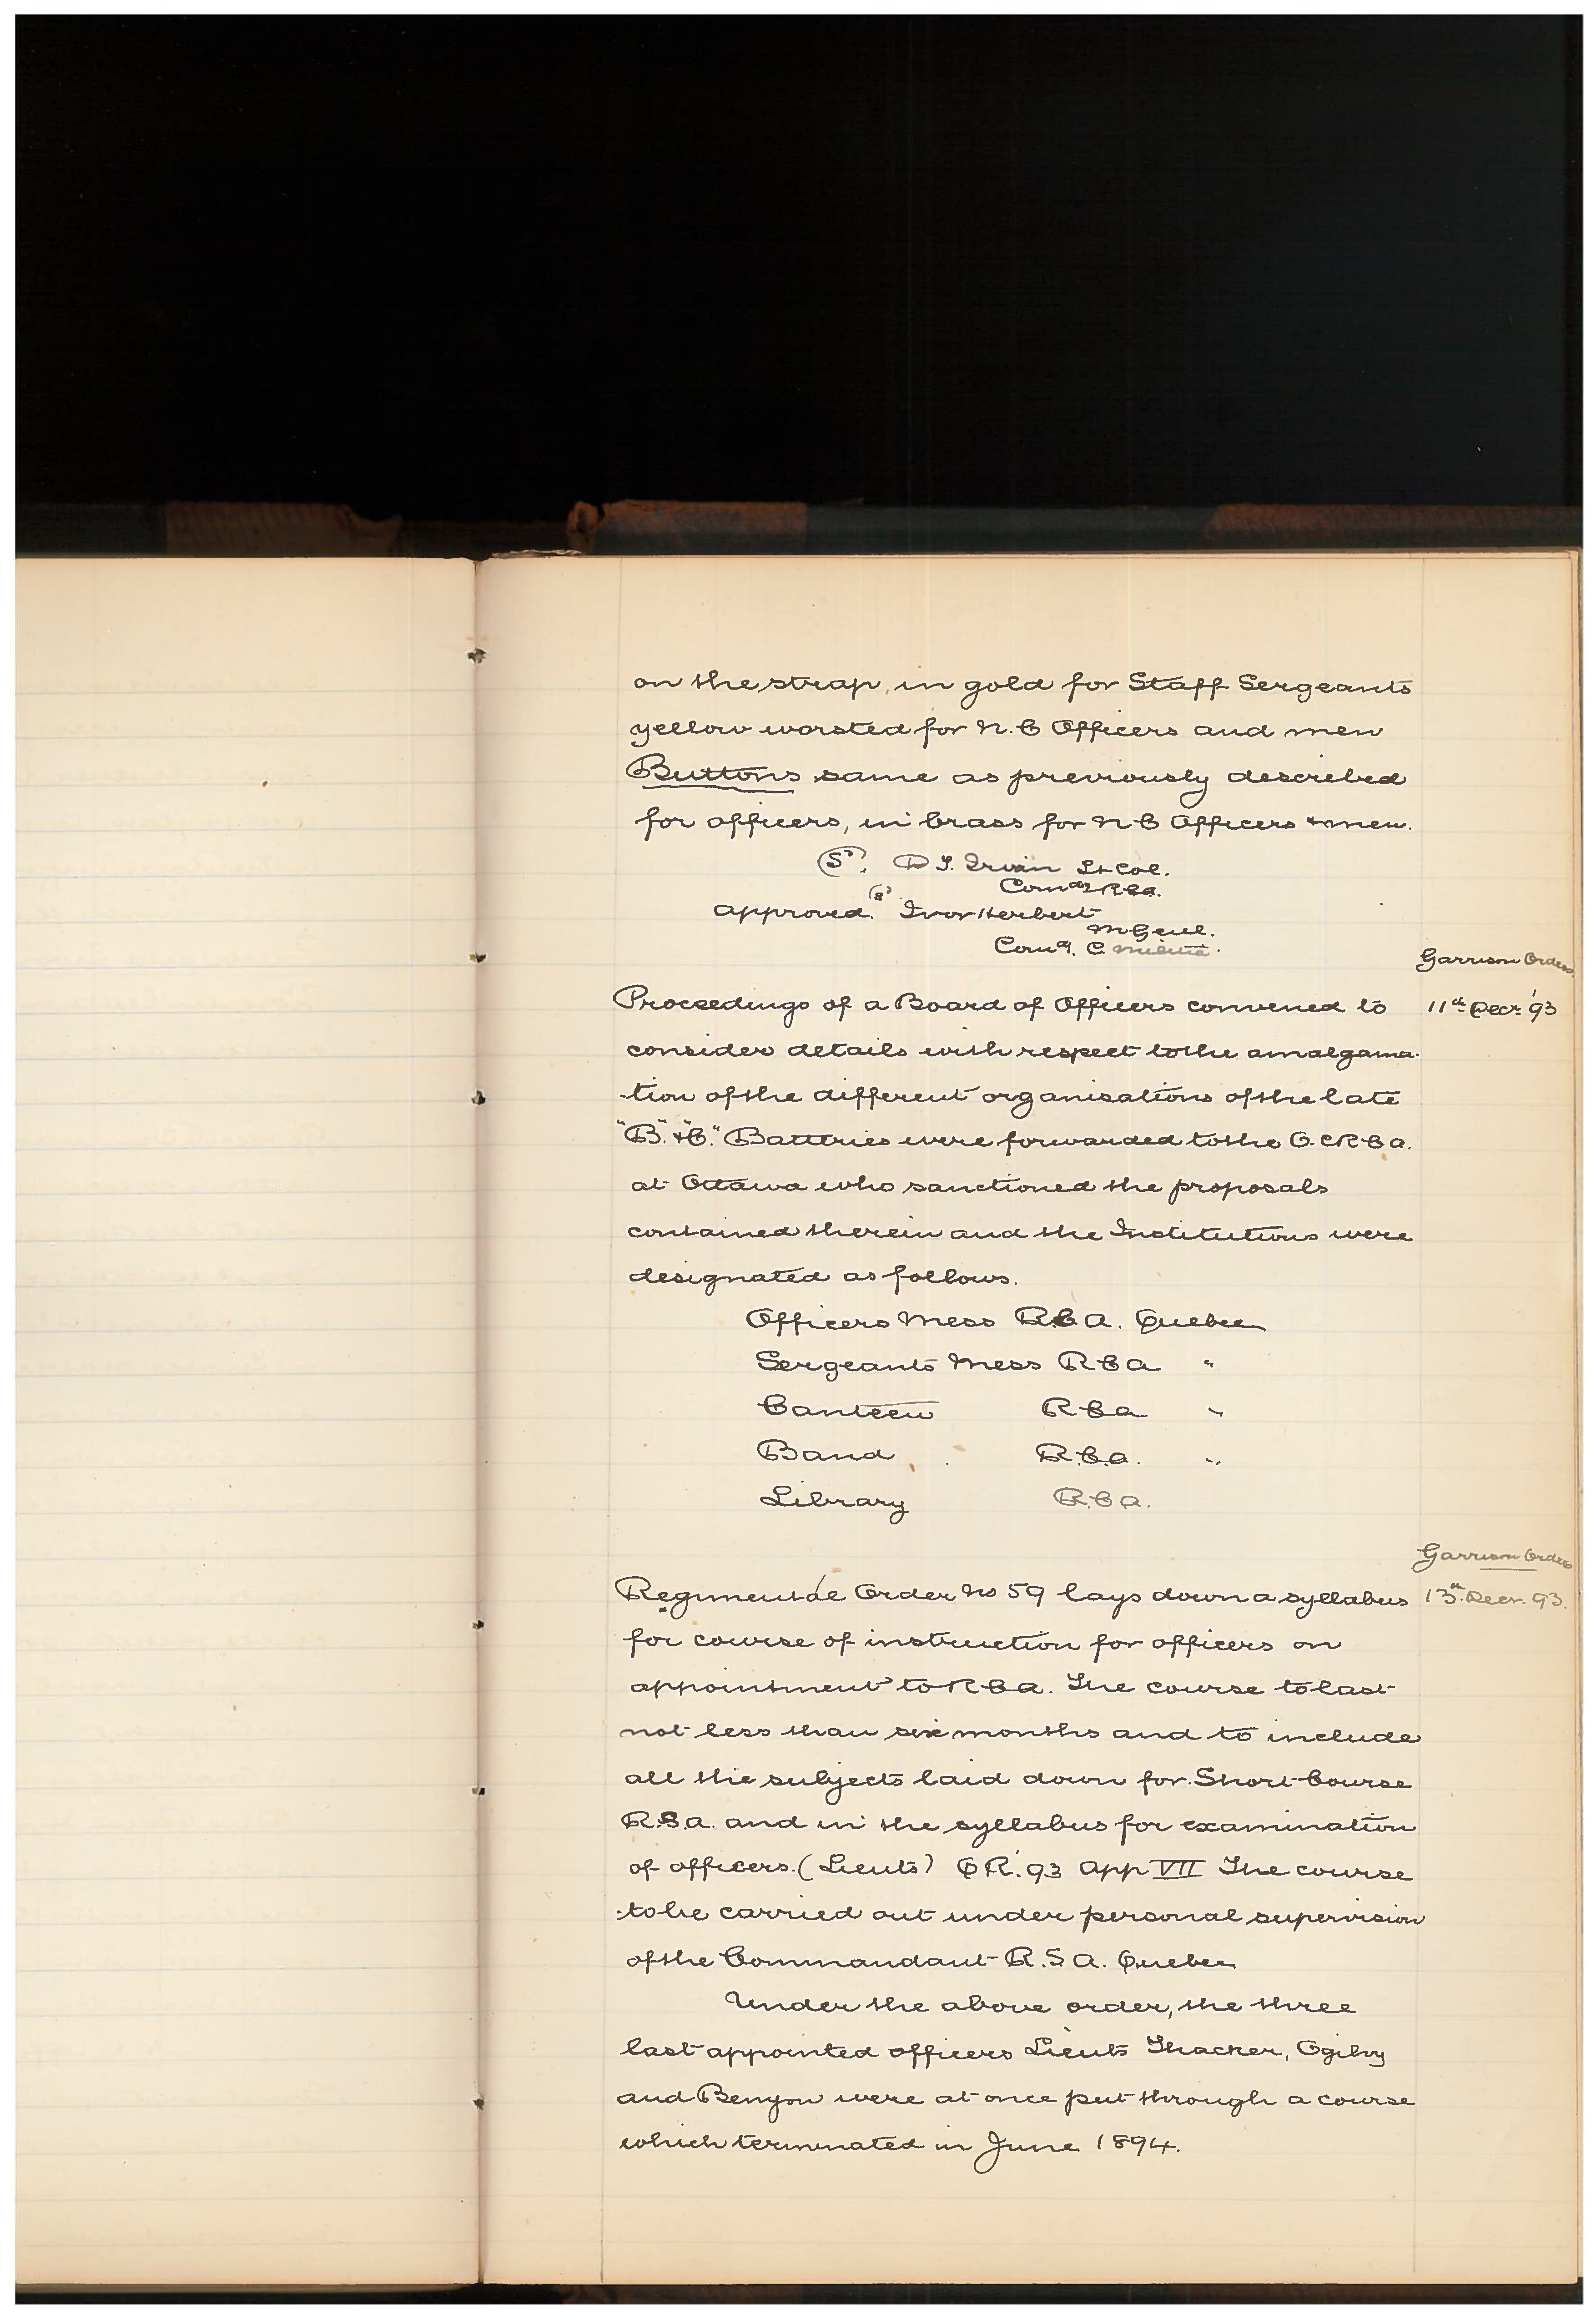 on the strap, in gold for Staff Sergeants
yellow worsted for N.C Officers and men
Buttons same as previously described
for officers, in brass for N C Officers & men.
(Sd). D T. Irwin Lt Col.
Comdg RCA.
approved. (Sd) Ivor Herbert
M Genl.
Comdg. C. Militia.
Garrison Orders
Proceedings of a Board of Officers convened to 11th Decr. '93
consider details with respect to the amalgama-
-tion of the different organisations of the late
"B". & "C." Batteries were forwarded to the O.C R C A.
at Ottawa who sanctioned the proposals
contained therein and the Institutions were
designated as follows.
Officers Mess R.C.A. Quebec
Sergeants Mess R C A "
Canteen R C A "
Band R.C.A. "
Library R.C A.
Garrison Orders
Regimental Order No 59 lays down a syllabus 13th Decr. 93.
for course of instruction for officers on
appointment to R C A. The course to last
not less than six months and to include
all the subjects laid down for Short Course
R.S.A. and in the syllabus for examination
of officers. (Lieuts) Q R. '93 App VII The course
to be carried out under personal supervision
of the Commandant R.S A. Quebec
Under the above order, the three
last appointed officers Lieuts Thacker, Ogilvy
and Benyon were at once put through a course
which terminated in June 1894.